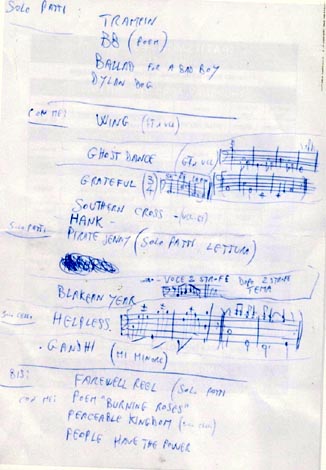 SOLO PATTI
TRAMPIN
BB (POEM)
BALLAD FOR A BAD BOY
DYLAN DOG
CON ME:
WING (GT, VCL)
GHOST DANCE (GT, VCL)
GRATEFUL (3/4)
SOUTHERN CROSS -
HANK -
PIRATE JENNY (SOLO PATTI LETTURA)
SOLO PATTI
VOCE 2 STROFE DOPO 2 STROFE
TEMA
BLAKEAN YEAR
SOLO CELLO
HELPLESS
GANDHI (MI MINORE)
BIS:
FAREWELL REEL (SOLO PATTI
CON ME: POEM "BURNING ROSES"
PEACEABLE KINGDOM
PEOPLE HAVE THE POWER